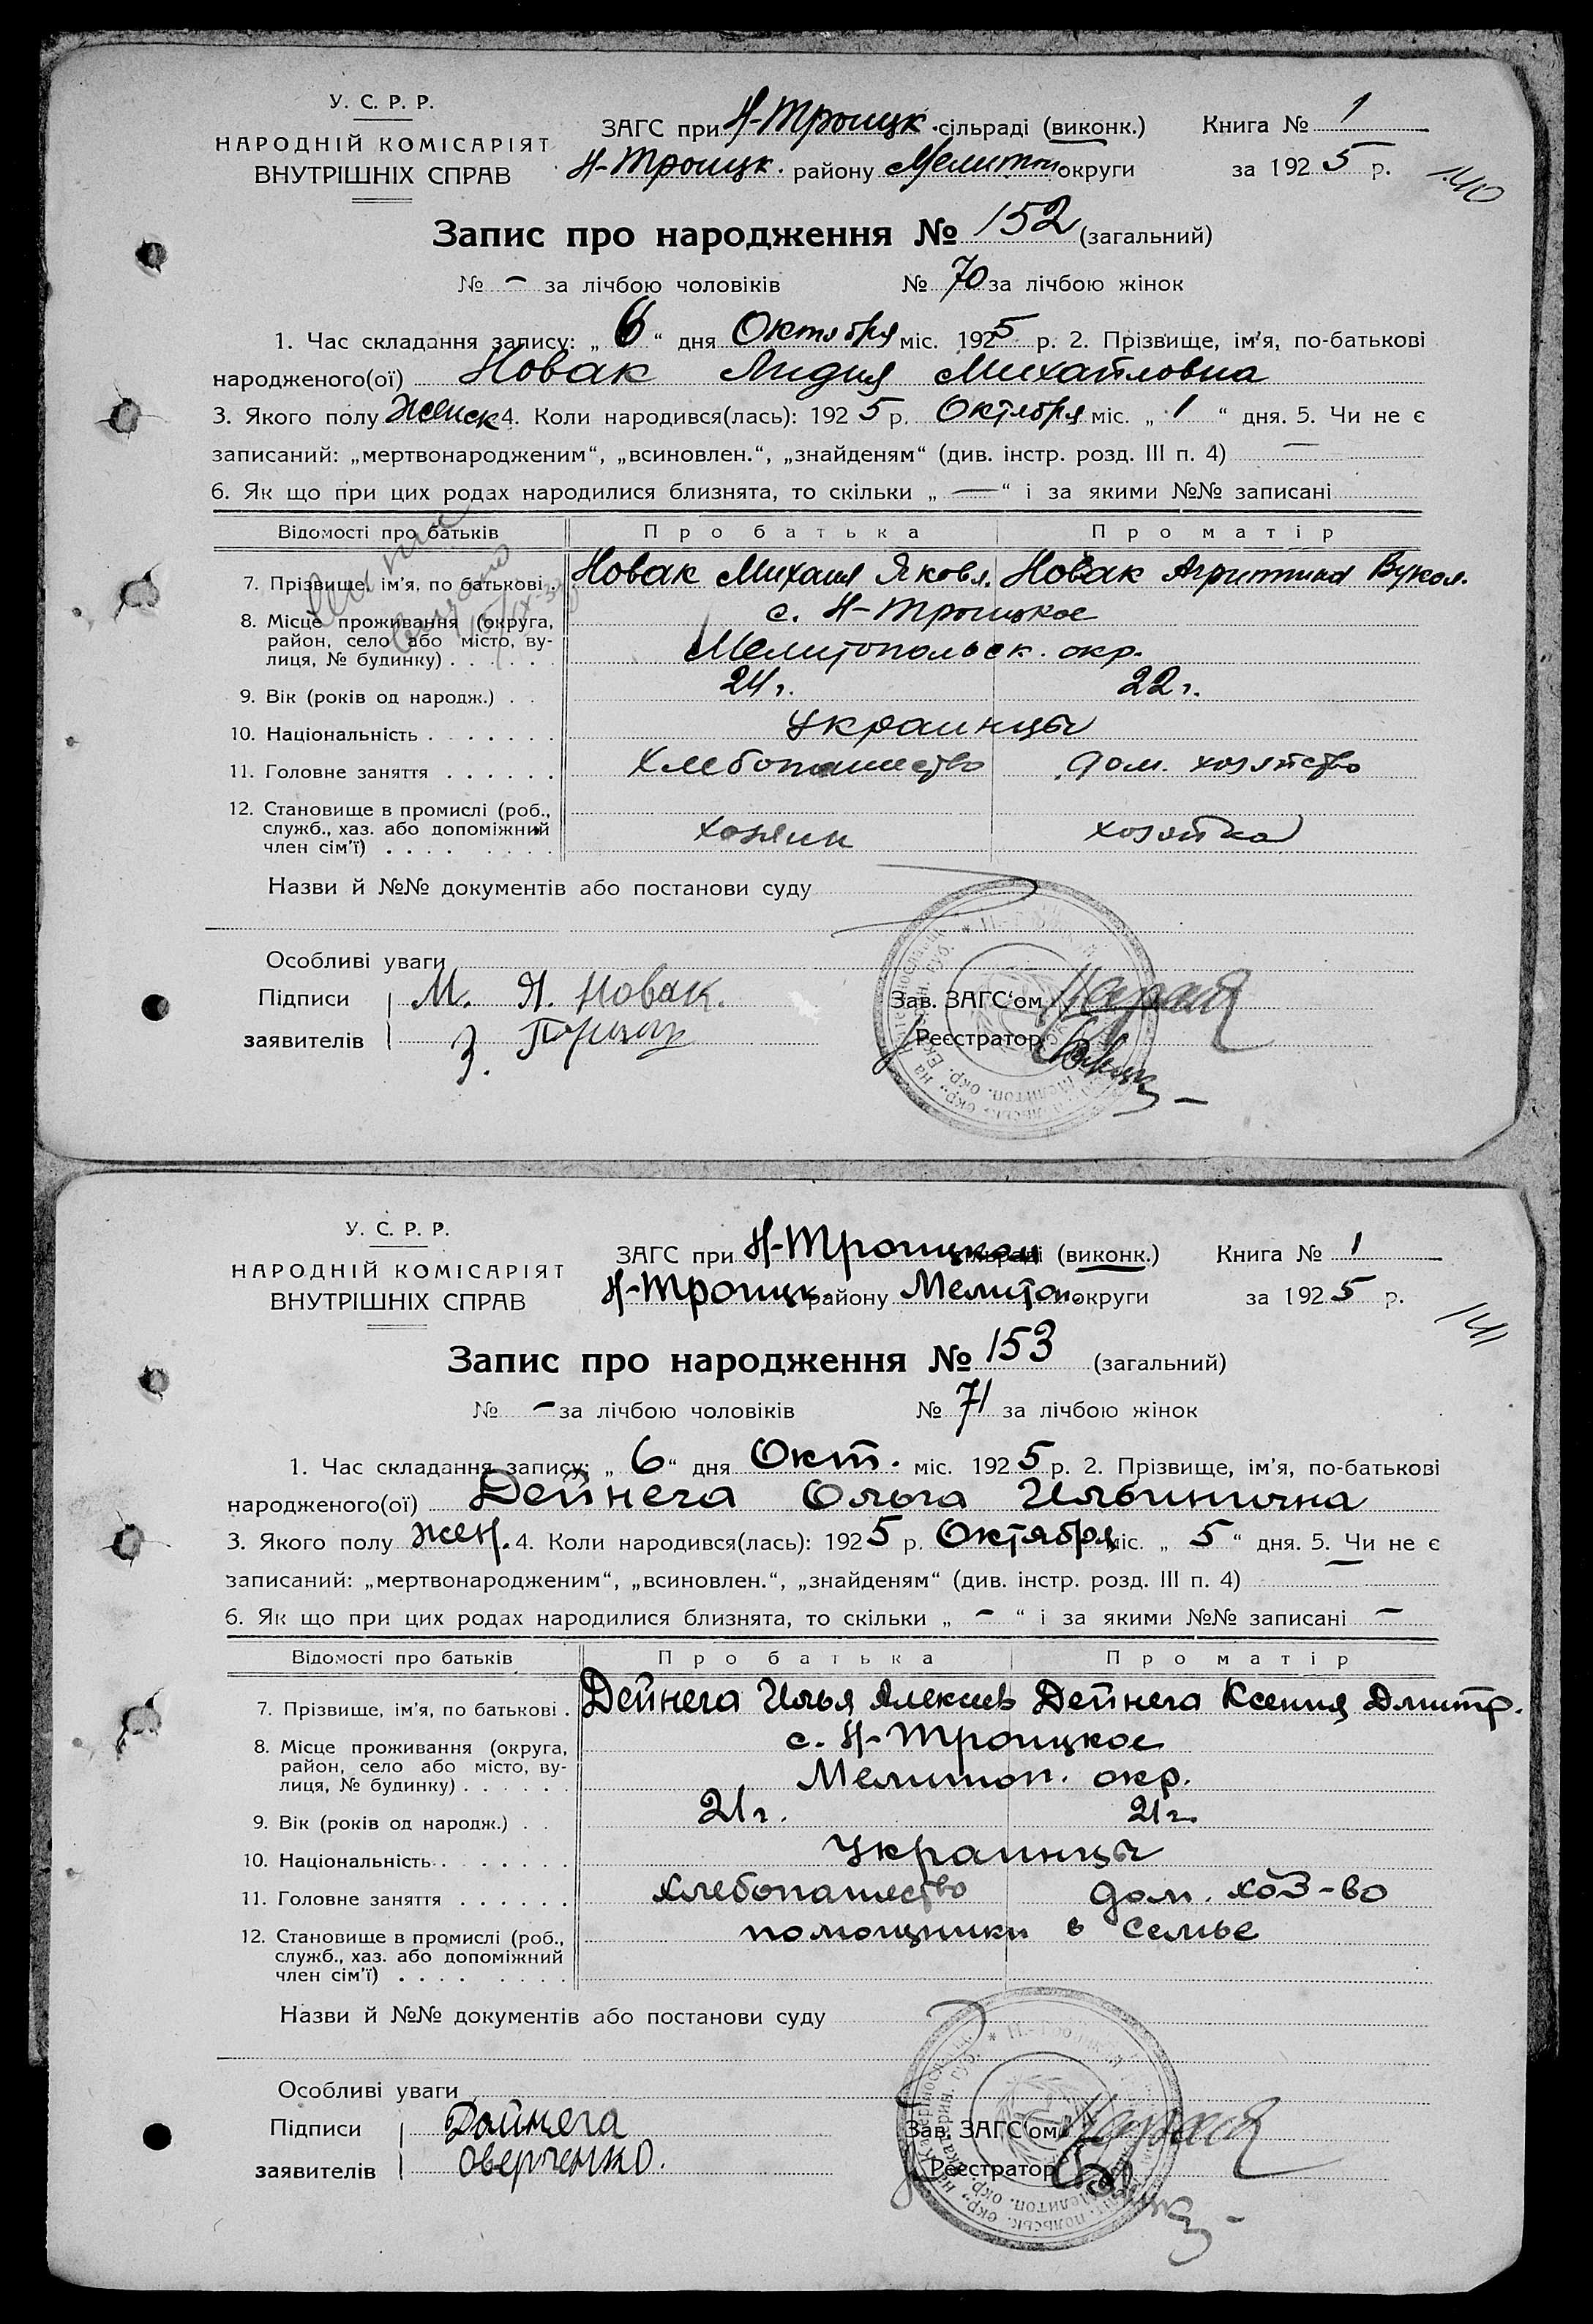 У. С. Р. Р.
НАРОДНІЙ КОМІСАРІЯТ
ВНУТРІШНІХ СПРАВ
ЗАГС при Н-Троицк. сільраді (виконк.) Книга № 1
Н-Троицк. району Мелитоп округи за 1925 р.
140
Запис про народження № 152 (загальний)
№ – за лічбою чоловіків № 70 за лічбою жінок
1. Час складання запису: „ 6 “ дня Октября міс. 1925 р. 2. Прізвище, ім’я, по-батькові
народженого(ої) Новак Лидия Михайловна
3. Якого полу Женск 4. Коли народився(лась): 1925 р. Октября міс. „ 1 “ дня. 5. Чи не є
записаний: „мертвонародженим“, „всиновлен.“, „знайденям“ (див. інстр. розд. III п. 4) —
6. Як що при цих родах народилися близнята, то скільки „ — “ і за якими №№ записані
Відомості про батьків Про батька Про матір
7. Прізвище, ім’я, по батькові Новак Михаил Яковл. Новак Агриппина Вукол.
8. Місце проживання (округа, с. Н-Троицкое
район, село або місто, ву-
лиця, № будинку) . . . . . . Мелитопольск. окр.
9. Вік (років од народж.) . . 24 г. 22 г.
10. Національність . . . . . . . украинцы
11. Головне заняття . . . . . . Хлебопашество дом. хозяйство
12. Становище в промислі (роб.,
служб., хаз. або допоміжний хозяин хозяйка
член сім’ї) . . . . . . . .
Назви й №№ документів або постанови суду
Особливі уваги
Підписи М. Я. Новак. Зав. ЗАГС‘ом
заявителів З. Реєстратор
У. С. Р. Р.
НАРОДНІЙ КОМІСАРІЯТ
ВНУТРІШНІХ СПРАВ
ЗАГС при Н-Троицком сільраді (виконк.) Книга № 1
Н-Троицк району Мелитоп. округи за 1925 р.
141
Запис про народження № 153 (загальний)
№ – за лічбою чоловіків № 71 за лічбою жінок
1. Час складання запису: „ 6 “ дня Окт. міс. 1925 р. 2. Прізвище, ім’я, по-батькові
народженого(ої) Дейнега Ольга Ильинична
3. Якого полу жен. 4. Коли народився(лась): 1925 р. Октября міс. „ 5 “ дня. 5. Чи не є
записаний: „мертвонародженим“, „всиновлен.“, „знайденям“ (див. інстр. розд. III п. 4) —
6. Як що при цих родах народилися близнята, то скільки „ – “ і за якими №№ записані –
Відомості про батьків Про батька Про матір
7. Прізвище, ім’я, по батькові . Дейнега Илья Алексеев Дейнега Ксения Дмитр.
8. Місце проживання (округа, с. Н-Троицкое
район, село або місто, ву-
лиця, № будинку) . . . . . . Мелитоп. окр.
9. Вік (років од народж.) . . 21 г. 21 г.
10. Національність . . . . . . . Украинцы
11. Головне заняття . . . . . . хлебопашество дом. хоз-во
12. Становище в промислі (роб., помощники в семье
служб., хаз. або допоміжний
член сім’ї) . . . . . . . .
Назви й №№ документів або постанови суду
Особливі уваги
Підписи Дойнега Зав. ЗАГС‘ом
заявителів Оверченко. Реєстратор